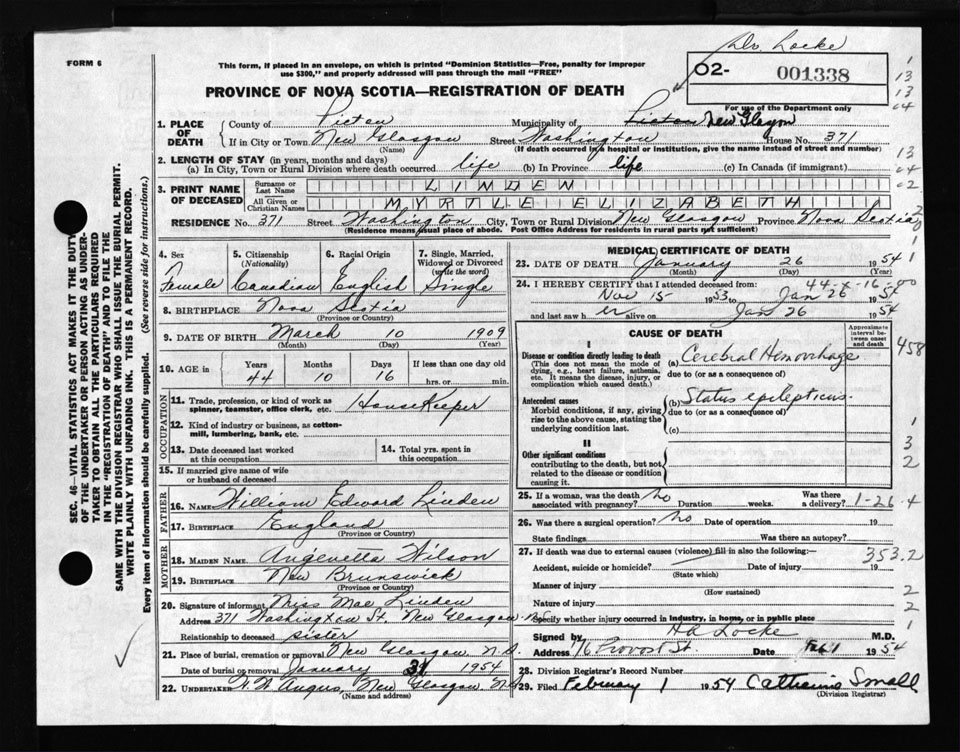 Dr. Locke
FORM 6
This form, if placed in an envelope, on which is printed "Dominion Statistics—Free, penalty for improper
use $300," and properly addressed will pass through the mail "FREE"
PROVINCE OF NOVA SCOTIA—REGISTRATION OF DEATH
O2- 001338
For use of the Department only
1. PLACE OF DEATH
County of Pictou Municipality of Pictou New Glasgow
If in City or Town New Glasgow Street Washington House No. 371
(Name) (If death occurred in a hospital or institution, give the name instead of street and number)
2. LENGTH OF STAY (in years, months and days)
(a) In City, Town or Rural Division where death occurred life (b) In Province life (c) In Canada (if immigrant)
3. PRINT NAME OF DECEASED
Surname or Last Name LINDEN
All Given or Christian Names MYRTLE ELIZABETH
RESIDENCE No. 371 Street Washington City, Town or Rural Division New Glasgow Province Nova Scotia
(Residence means usual place of abode. Post Office Address for residents in rural parts not sufficient)
4. Sex Female
5. Citizenship (Nationality) Canadian
6. Racial Origin English
7. Single, Married, Widowed or Divorced (write the word) Single
8. BIRTHPLACE Nova Scotia
(Province or Country)
9. DATE OF BIRTH March 10 1909
(Month) (Day) (Year)
10. AGE in Years 44 Months 10 Days 16 If less than one day old hrs. or min.
OCCUPATION
11. Trade, profession, or kind of work as spinner, teamster, office clerk, etc. HouseKeeper
12. Kind of industry or business, as cotton-mill, lumbering, bank, etc.
13. Date deceased last worked at this occupation
14. Total yrs. spent in this occupation
15. If married give name of wife or husband of deceased
FATHER
16. NAME William Edward Linden
17. BIRTHPLACE England
(Province or Country)
MOTHER
18. MAIDEN NAME Wilson
19. BIRTHPLACE New Brunswick
(Province or Country)
20. Signature of informant Miss Mae Linden
Address 371 Washington St. New Glasgow N.S.
Relationship to deceased sister
21. Place of burial, cremation or removal New Glasgow, N.S.
Date of burial or removal January 31 1954
22. UNDERTAKER Angus, New Glasgow, N.S.
(Name and address)
MEDICAL CERTIFICATE OF DEATH
23. DATE OF DEATH January 26 1954
(Month) (Day) (Year)
44-x-16-00
24. I HEREBY CERTIFY that I attended deceased from:
Nov 15 1953 to Jan 26 1954
and last saw her alive on Jan 26 1954
CAUSE OF DEATH
Approximate interval between onset and death
I
Disease or condition directly leading to death
(This does not mean the mode of dying, e.g., heart failure, asthenia, etc. It means the disease, injury, or complication which caused death.)
(a) Cerebral Hemorrhage
due to (or as a consequence of)
Antecedent causes
Morbid conditions, if any, giving rise to the above cause, stating the underlying condition last.
(b) Status epilepticus.
due to (or as a consequence of)
(c)
II
Other significant conditions
contributing to the death, but not related to the disease or condition causing it.
25. If a woman, was the death associated with pregnancy? No Duration weeks. Was there a delivery? 1-26-4
26. Was there a surgical operation? No Date of operation 19
State findings Was there an autopsy?
27. If death was due to external causes (violence) fill in also the following:—
Accident, suicide or homicide? Date of injury 19
(State which)
Manner of injury
(How sustained)
Nature of injury
Specify whether injury occurred in industry, in home, or in public place
Signed by HA Locke M.D.
Address 76 Provost St. Date Feb 1 1954
28. Division Registrar's Record Number
29. Filed February 1 1954 Catherine Small
(Division Registrar)
458
353.2
SEC. 46—VITAL STATISTICS ACT MAKES IT THE DUTY
OF THE UNDERTAKER OR PERSON ACTING AS UNDER-
TAKER TO OBTAIN ALL THE PARTICULARS REQUIRED
IN THE "REGISTRATION OF DEATH" AND TO FILE THE
SAME WITH THE DIVISION REGISTRAR WHO SHALL ISSUE THE BURIAL PERMIT.
WRITE PLAINLY WITH UNFADING INK. THIS IS A PERMANENT RECORD.
Every item of information should be carefully supplied. (See reverse side for instructions.)
1
13
13
04
13
04
02
1
1
3
2
2
2
1